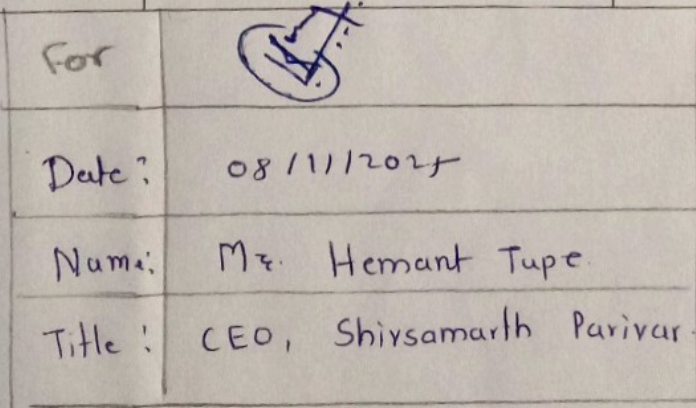 For
Date: 08/11/2025
Name: Mr. Hemant Tupe.
Title: CEO, Shivsamarth Parivar.